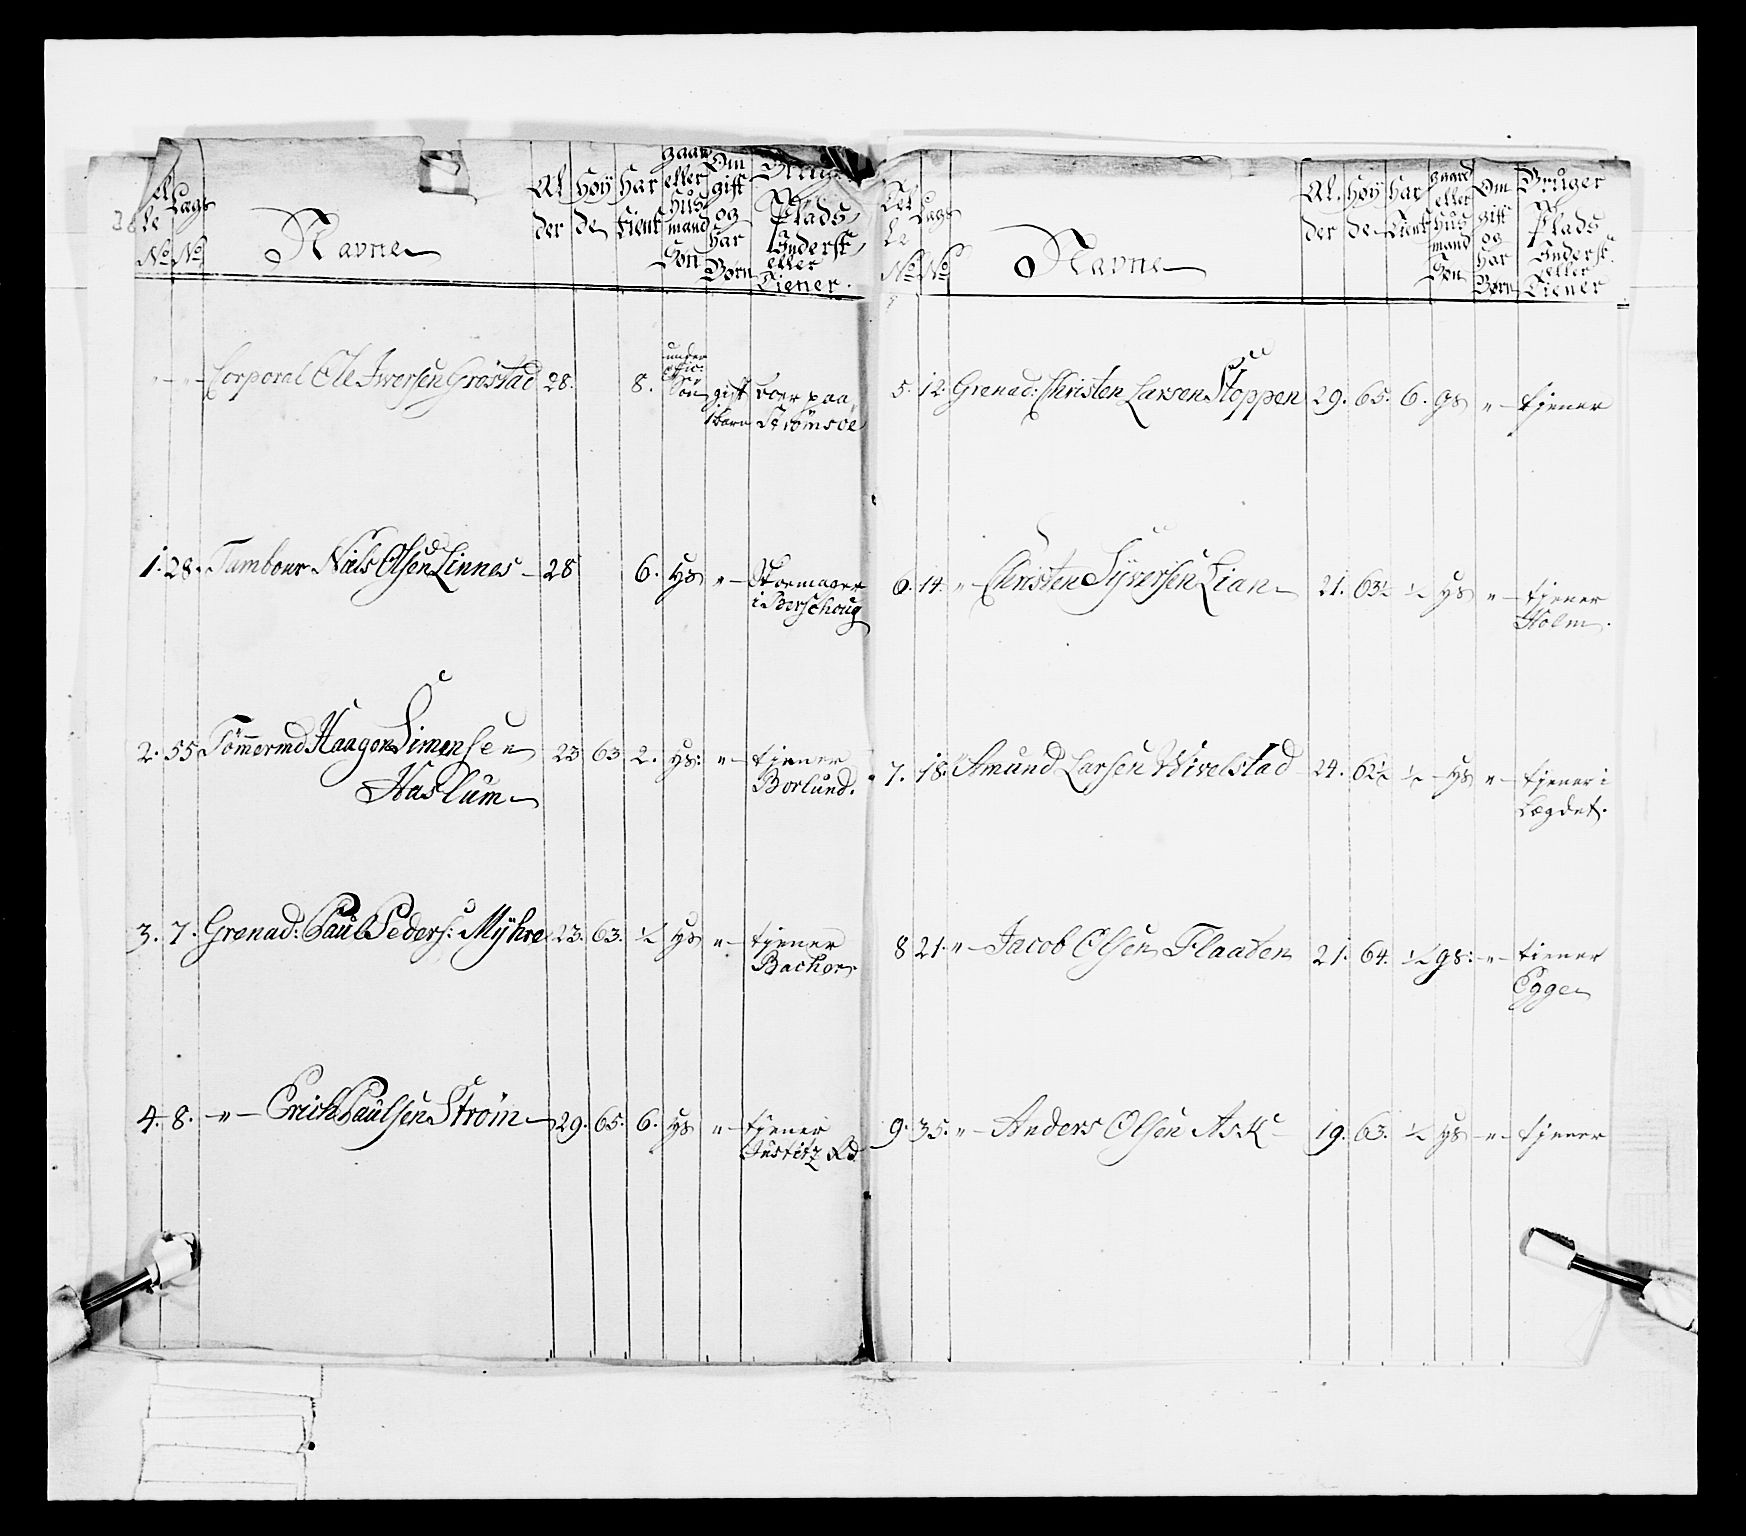 Navne
Al der
Høy de
Har tient
gaar eller Hus mand Søn
Om gift og har Børn
Plads Inderst eller Tiener.
" " Corporal Ole Iversen Grøstad 28. 8. under offic: Søn gift 1 barn boer paa Strömsöe
1. 28. Tambour Niels Olsen Linnes 28 6. Hs " Skoemager i Berschoug
2. 55 Tömermd Haagen Simensen Haslum 23 63 2. Hs: " tjener Borlund.
3. 7. Grenad: Paul Peders: Mÿhre 23. 63. ½ Hs " tjener Bacher
4. 8. " Erich Paulsen Strøm 29. 65. 6. Hs " tjener Justitz Rd
Tel le No
Lags No
Navne
Al. der
Høy de
Har Tient
gaard eller Hus mand Søn
Om gift og har Børn
Bruger Plads Inderst. eller Tiener
5. 12. Grenad: Christen Larsen Stoppen 29. 65. 6. gs " tjener
6. 14. " Christen Syversen Lian 21. 63½ ½ Hs " tjener Holm.
7. 18. " Amund Larsen Wivelstad 24. 62½ ½ Hs " tjener i Lægdet.
8 21. " Jacob Olsen Flaaten 21. 64. ½ gs: " tiener Egge
9. 35. " Anders Olsen Ask 19. 63. ½ Hs " tjener